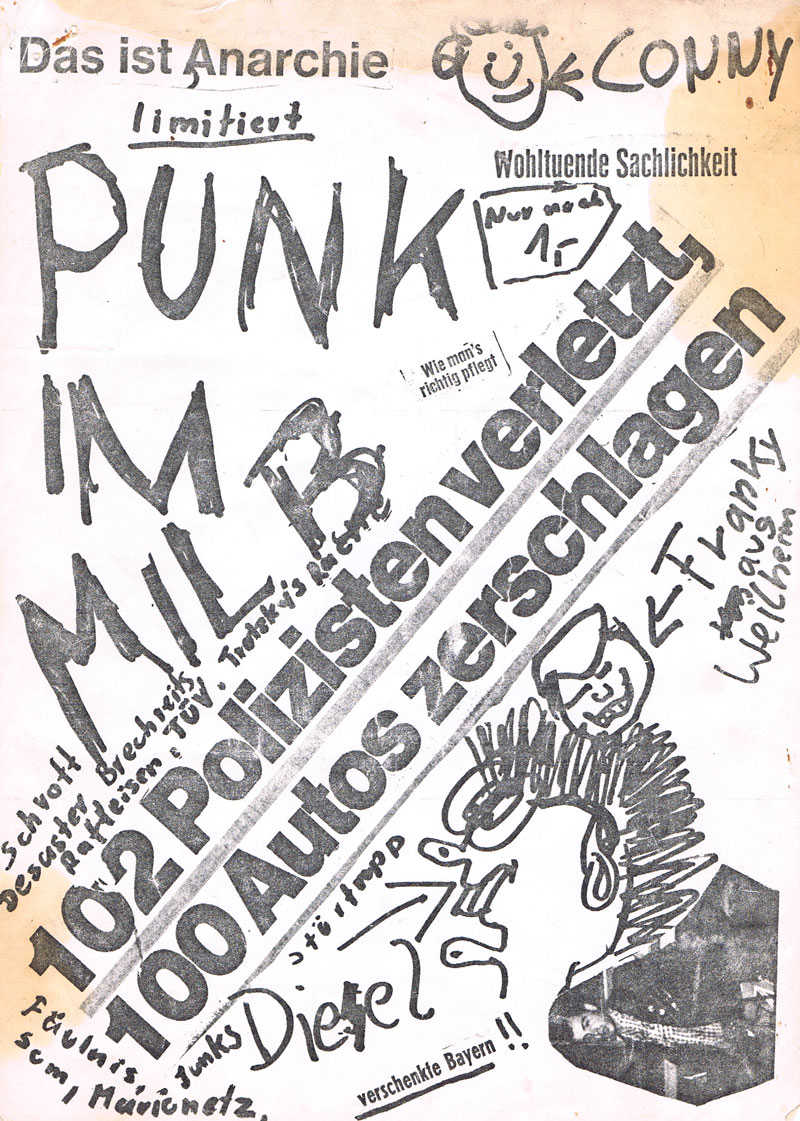 Das ist Anarchie
CONNY
limitiert
Wohltuende Sachlichkeit
PUNK
Nur noch
1,-
Wie man's
richtig pflegt
IM
MILB
102 Polizisten verletzt,
100 Autos zerschlagen
Frank
aus
Weilheim
Schrott
Desaster Brechreits
Raffeisen, TÜV,
Diesel
verschenkte Bayern !!
Fäulnis, Junks
Sum, Marionetz,